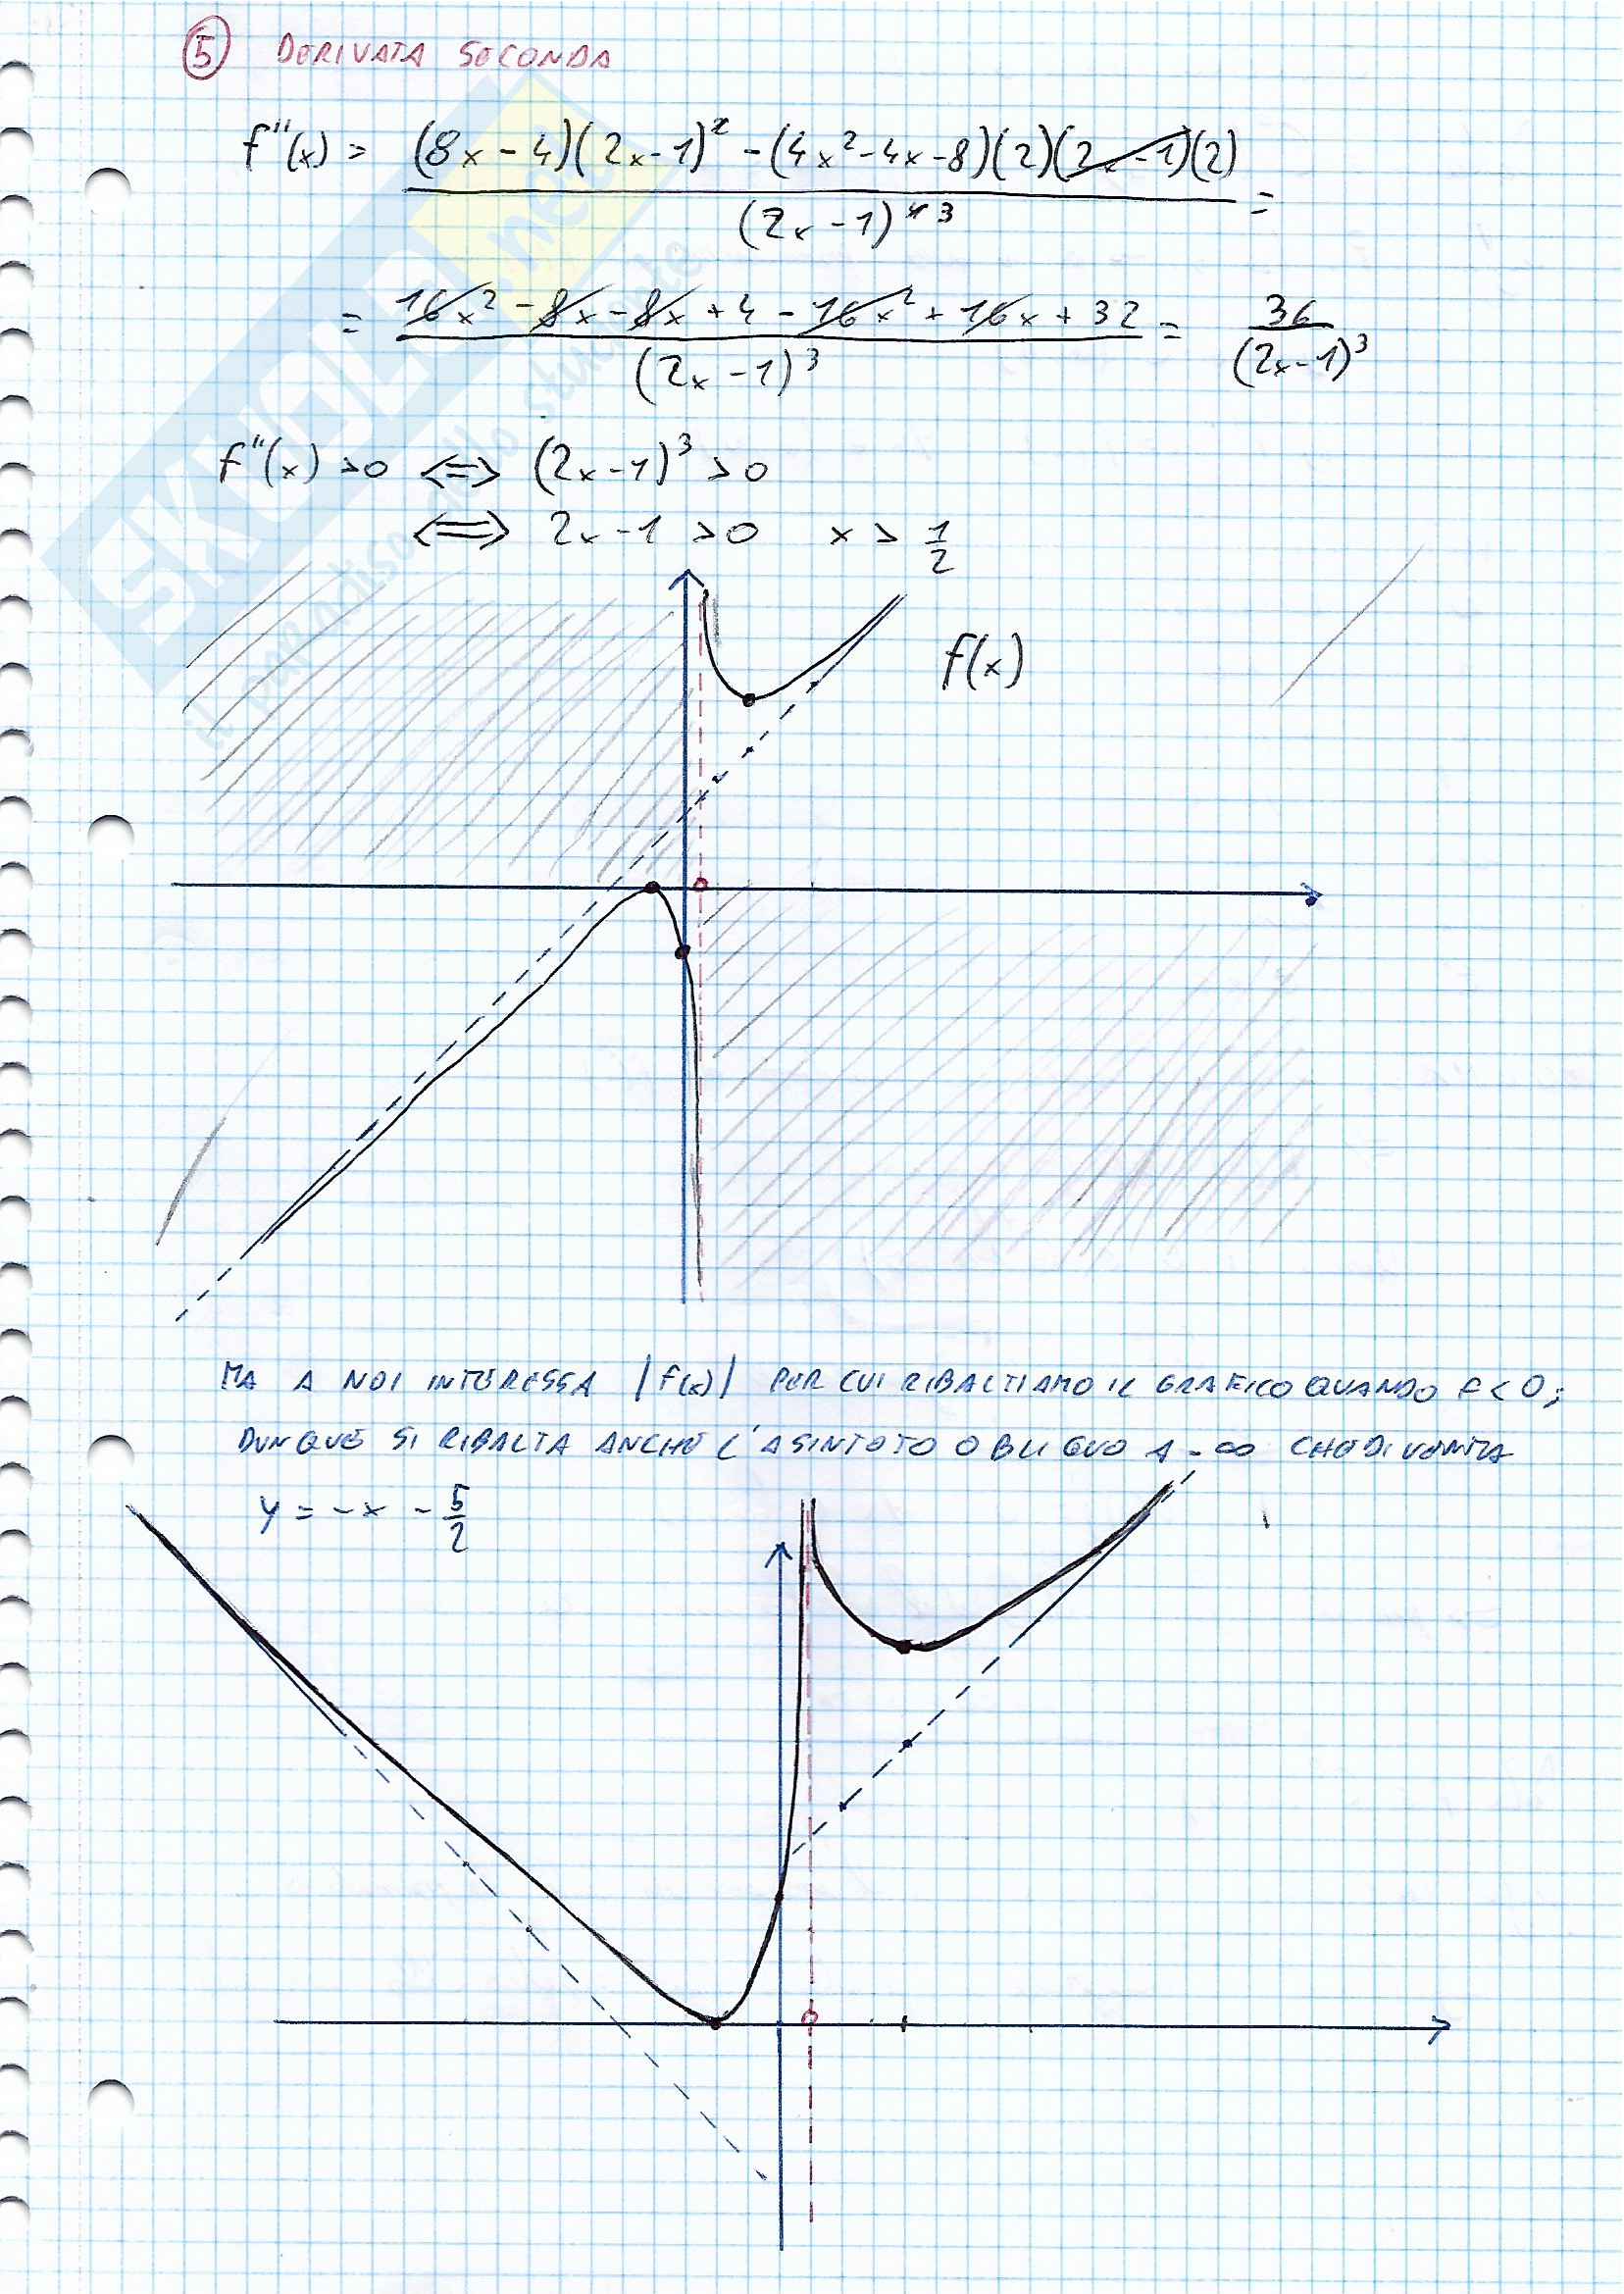 ⑤ DERIVATA SECONDA
f''(x) = \frac{(8x-4)(2x-1)^2 - (4x^2-4x-8)(2)(2x-1)(2)}{(2x-1)^{4 3}} =
= \frac{16x^2 - 8x - 8x + 4 - 16x^2 + 16x + 32}{(2x-1)^3} = \frac{36}{(2x-1)^3}
f''(x) > 0 ⇔ (2x-1)^3 > 0
⇔ 2x-1 > 0 x > \frac{1}{2}
f(x)
MA A NOI INTERESSA |f(x)| PER CUI RIBALTIAMO IL GRAFICO QUANDO f < 0;
DUNQUE SI RIBALTA ANCHE L'ASINTOTO OBLIQUO A -∞ CHE DIVENTA
y = -x - \frac{5}{2}
SKUOLA.net
il paradiso dello studente